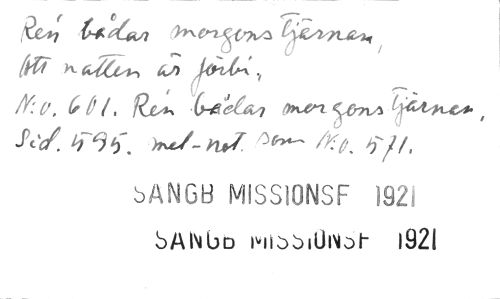 Ren bådar morgonstjärnan,
Att natten är förbi,
N:o. 601. Ren bådar morgonstjärnan,
Sid. 595. mel-not. som N:o. 571.
SANGB MISSIONSF 1921
SANGB MISSIONSF 1921